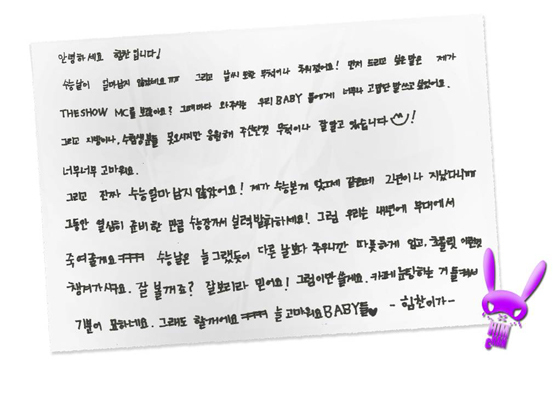 안녕하세요 힘찬입니다!
수능날이 얼마남지 않았네요ㅠㅠ 그리고 날씨 또한 무척이나 추워졌어요! 먼저 드리고 싶은 말은 제가
THE SHOW MC를 보잖아요? 그때마다 와주시는 우리 BABY 들에게 너무나 고맙단 말쓰고 싶었어요.
그리고 지방이나, 수험생분들 못오시지만 응원해 주신단것 무척이나 잘 알고 있습니다 !
너무너무 고마워요.
그리고 진짜 수능얼마 남지 않았어요! 제가 수능본게 엊그제 같은데 2년이나 지났다니ㅠㅠ
그동안 열심히 준비한 만큼 수능장가서 실력발휘하세요! 그럼 우리는 내년에 무대에서
죽여줄게요 ㅋㅋㅋㅋ 수능날은 늘 그랬듯이 다른 날보다 추우니깐 따뜻하게 입고, 초콜릿
챙겨가시구요. 잘 볼꺼죠? 잘보리라 믿어요! 그럼이만 쓸게요. 카페 눈팅하는 거
기분이 묘하네요. 그래도 할꺼에요 ㅋㅋㅋㅋ 늘 고마워요 BABY들♥ - 힘찬이가 -